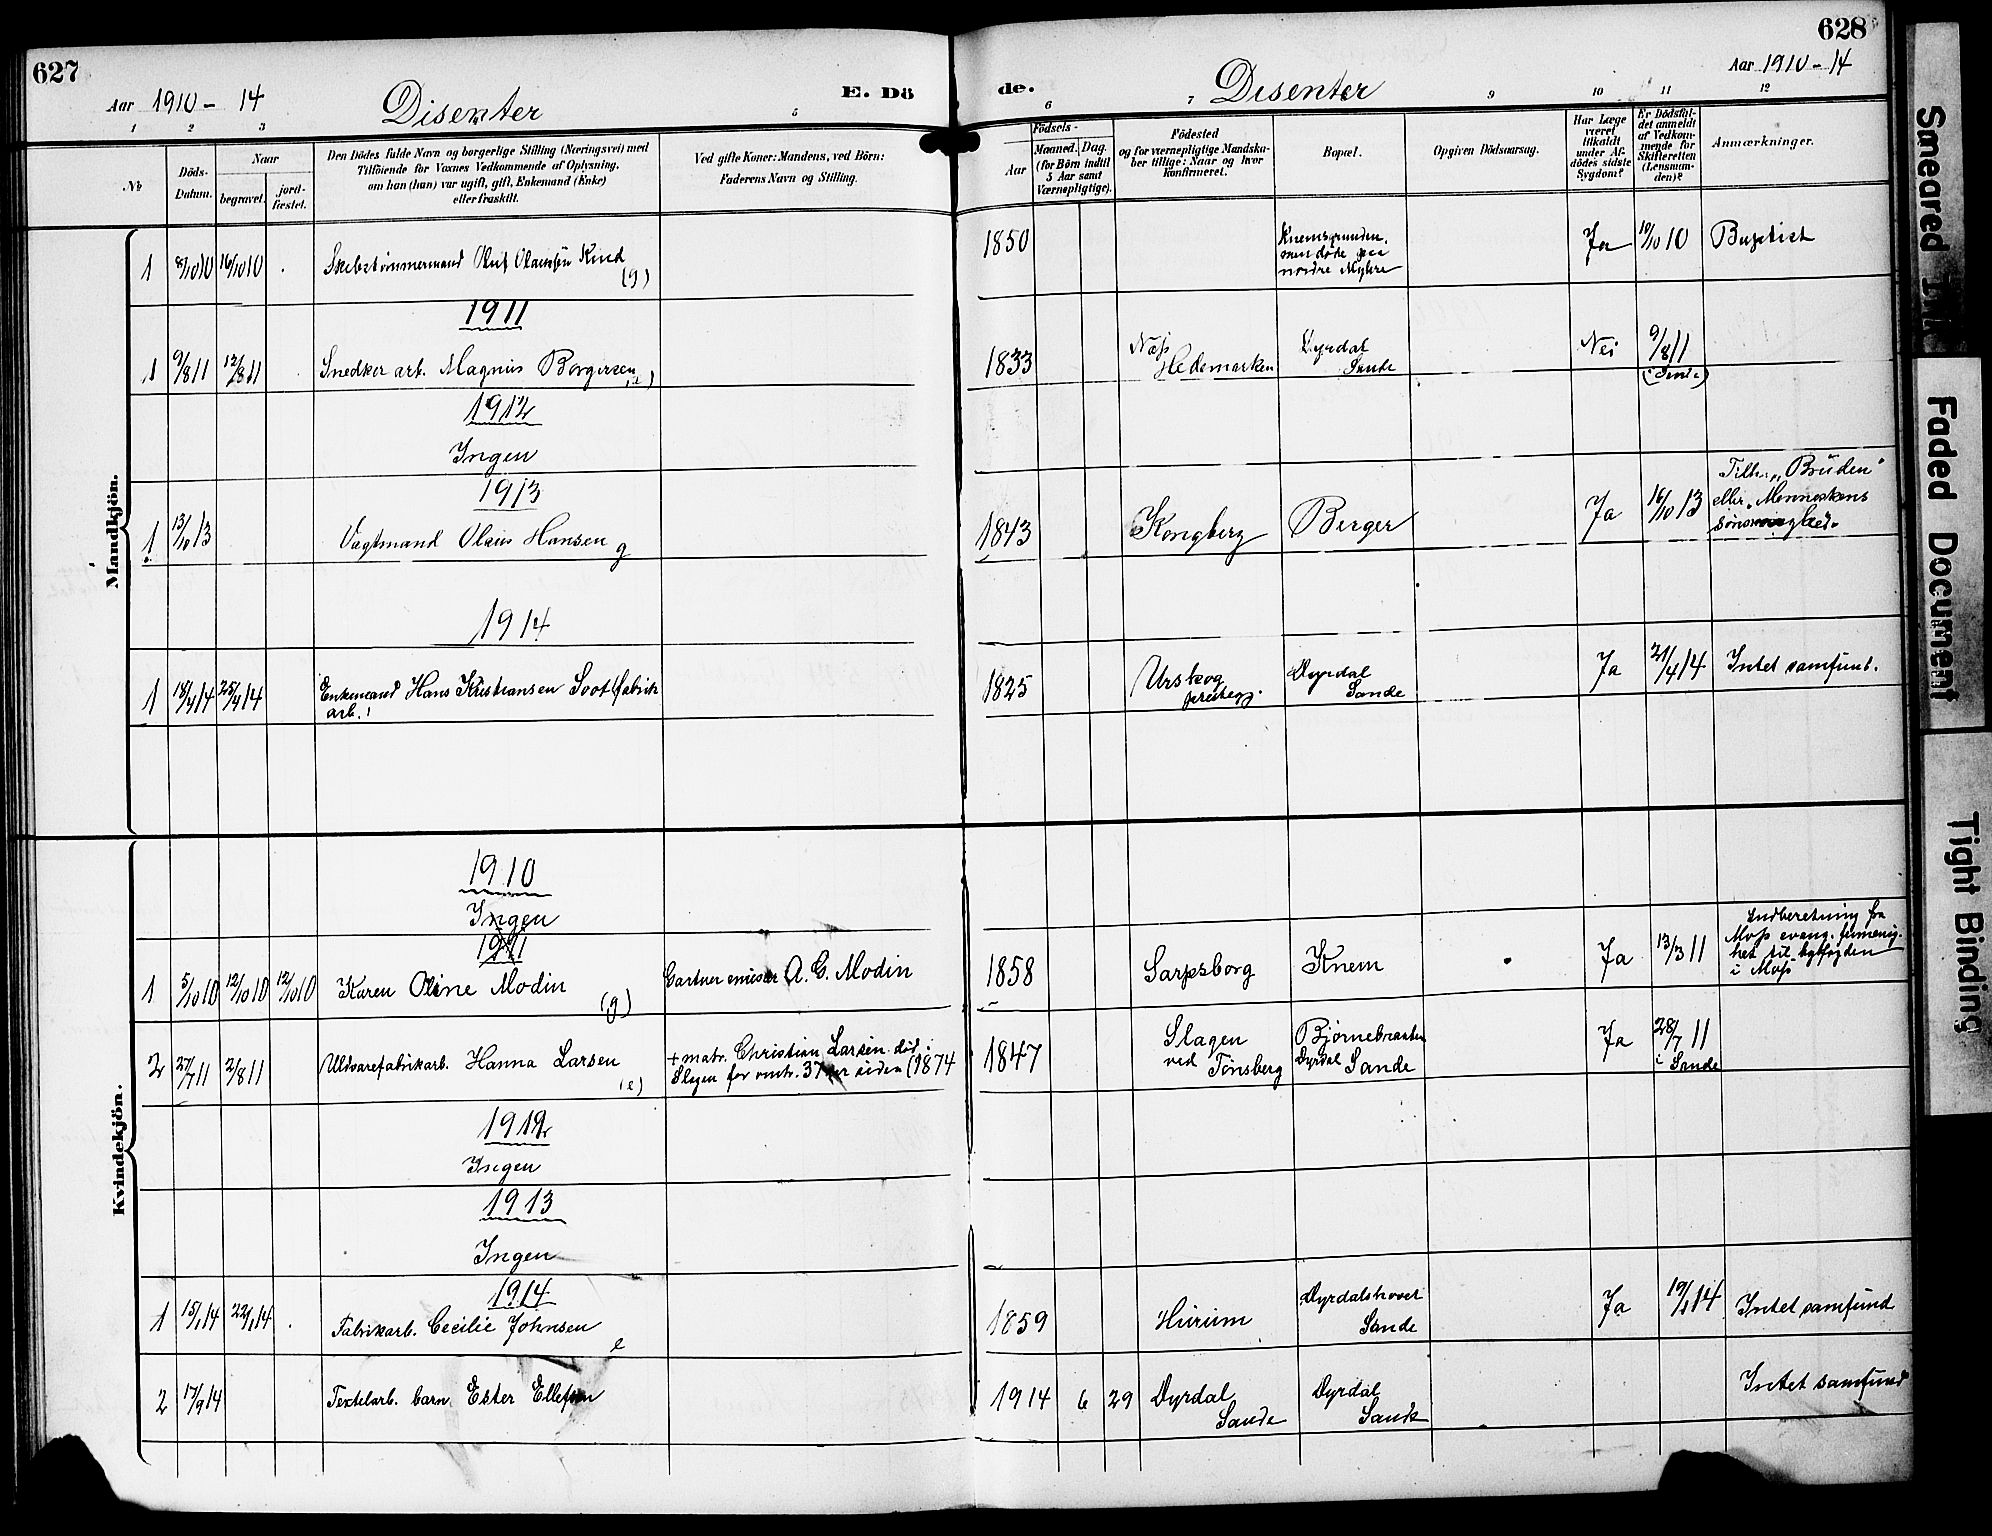 627
Aar 1910 - 14
Disenter
E. Dö
de.
Disenter
628
Aar 1910 - 14
1 2 3 5 6 7 9 10 11 12
№
Döds-
Datum.
Naar
begravet.
jord-
fæstet.
Den Dödes fulde Navn og borgerlige Stilling (Næringsvei) med
Tilföiende for Voxnes Vedkommende af Oplysning,
om han (hun) var ugift, gift, Enkemand (Enke)
eller fraskilt.
Ved gifte Koner: Mandens, ved Börn:
Faderens Navn og Stilling.
Födsels-
Aar
Maaned. Dag.
(for Börn indtil
5 Aar samt
Værnepligtige).
Födested
og for værnepligtige Mandska-
ber tillige: Naar og hvor
Konfirmeret.
Bopæl.
Opgiven Dödsaarsag.
Har Læge
været
tilkaldt
under Af-
dödes sidste
Sygdom?
Er Dödsfal-
det anmeldt
af Vedkom-
mende for
Skifteretten
(Lensman-
den)?
Anmærkninger.
Mandkjön.
1 8/10 10 16/10 10 Skibstømmermand Oluf Olaussen Knud (g)
1850 Knemsgrunden, men døde paa nordre Myhre Ja 10/10 10 Baptist
1911
1 9/8 11 12/8 11 Snedker arb. Magnus Borgersen (e)
1833 Næss Hedemarken Dyrdal Sande Nei 9/8 11 (i Sande)
1912
Ingen
1913
1 13/10 13 Vagtmand Olaus Hansen g
1843 Kongberg Berger Ja 16/10 13 Tilh. "Bruden" eller Menneskens søns
1914
1 18/4 14 25/4 14 Enkemand Hans Kristiansen Soot (fabrik arb.)
1825 Urskog prestegj. Dyrdal Sande Ja 21/4 14 Intet samfund.
Kvindekjön.
1910
Ingen
1911
1 5/10 10 12/10 10 12/10 10 Karen Oline Modin (g) Gartner emissær A. G. Modin
1858 Sarpsborg Knem Ja 13/3 11 Indberetning fra Moss evang. hermenig-het til bytfogden i Moss
2 27/7 11 2/8 11 Uldvarefabrikarb. Hanna Larsen (e) + matr. Christian Larsen død i Slagen for omtr. 37 aar siden (1874
1847 Slagen ved Tønsberg Bjørnebraaten Dyrdal Sande Ja 28/7 11 i Sande
1912
Ingen
1913
Ingen
1914
1 15/1 14 22/1 14 Fabrikarb. Cecilie Johnsen e
1859 Hurum Dyrdalshovet Sande Ja 19/1 14 Intet samfund
2 17/9 14 Textelarb. barn Ester Ellefsen
1914 6 29 Dyrdal Sande Dyrdal Sande Intet samfund
Smeared
Faded Document
Tight Binding